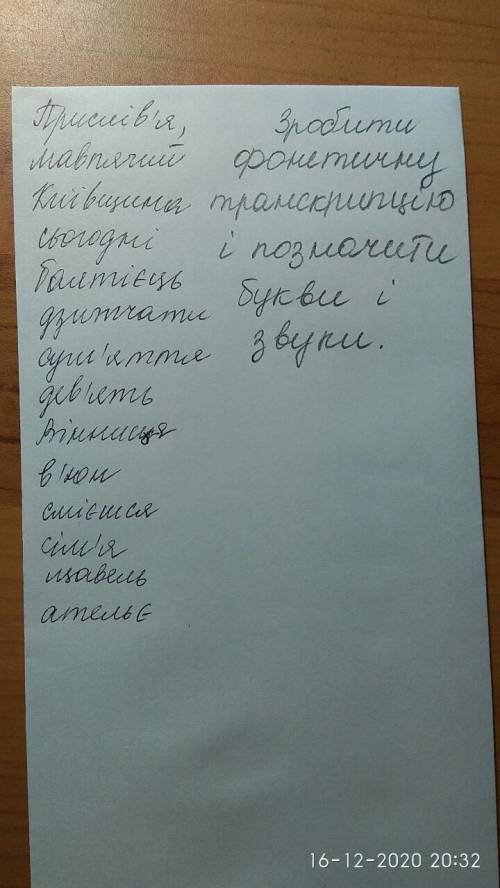 Прислів'я,
мавпячий
Київщина
сьогодні
балтієць
дзижчати
сум'яття
дев'ять
Вінниця
в'юн
смієшся
сім'я
щавель
ательє
Зробити
фонетичну
транскрипцію
і позначити
букви і
звуки.
16-12-2020 20:32